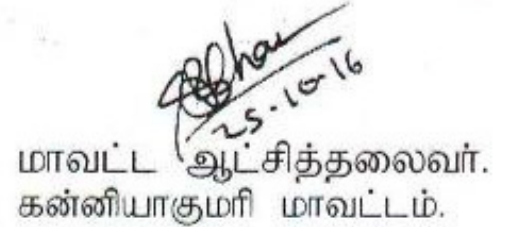 25-10-16
மாவட்ட ஆட்சித்தலைவர்.
கன்னியாகுமரி மாவட்டம்.